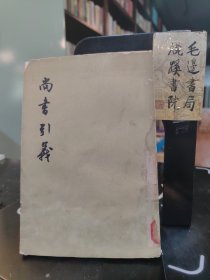 尚書引義
毛邊書局
流蹊書院